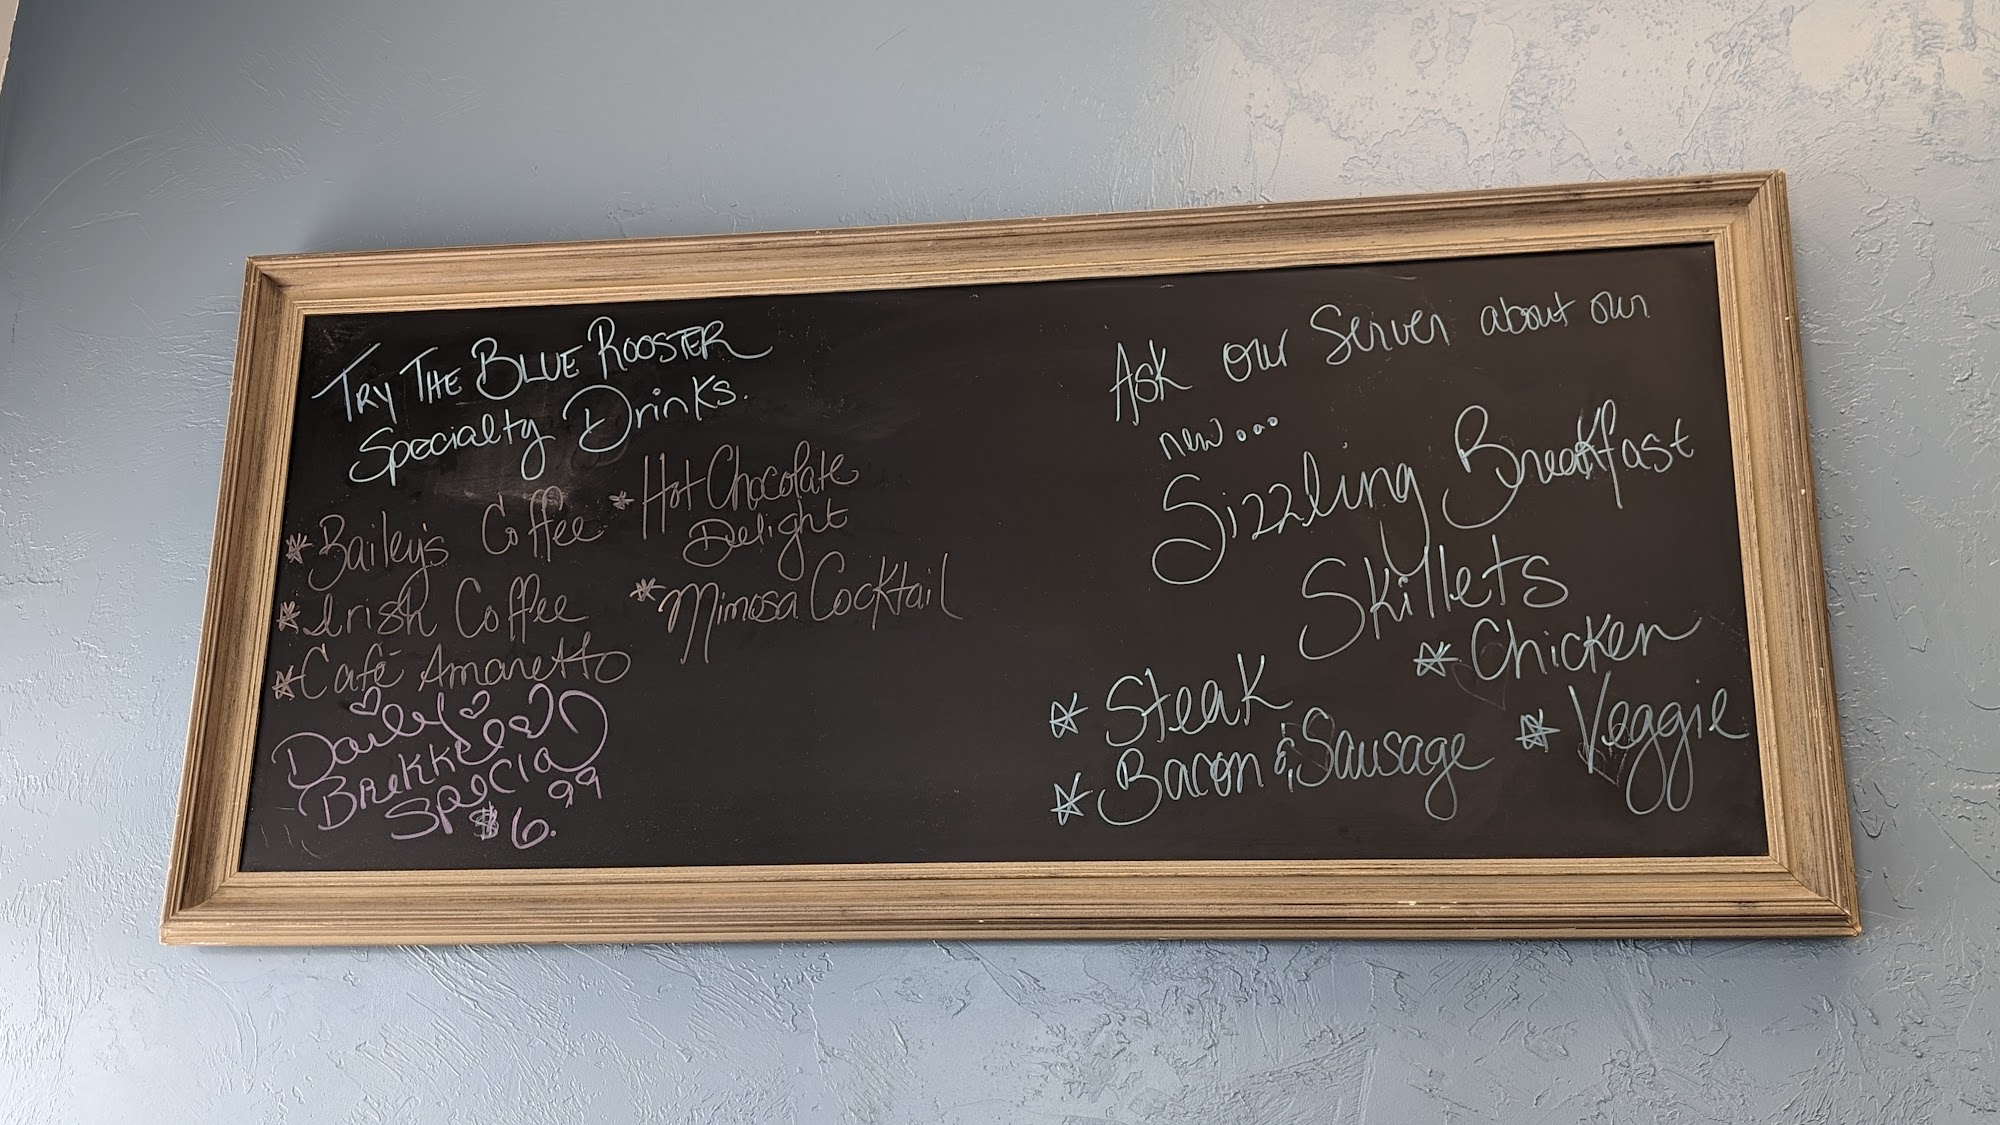 TRY THE BLUE ROOSTER
Specialty Drinks.
* Bailey's Coffee
* Irish Coffee
* Café Amaretto
* Hot Chocolate
Delight
* Mimosa Cocktail
Daily
Brekkie
Special
$6.99
Ask our Server about our
new...
Sizzling Breakfast
Skillets
* Steak
* Chicken
* Bacon & Sausage
* Veggie